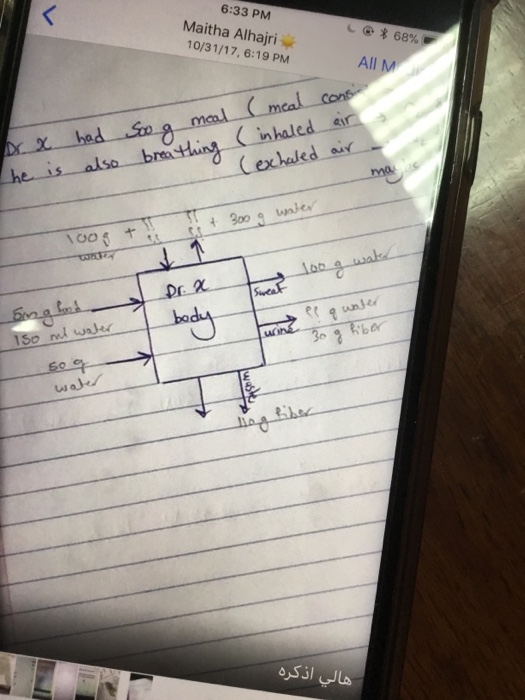 6:33 PM
68%
Maitha Alhajri
10/31/17, 6:19 PM
All
Dr x had 500 g meal ( meal
he is also breathing ( inhaled air
( exhaled air
100g + ?? ?? + 300 g water
water
Dr. x
body
500 g food
150 ml water
50 g
water
sweat
100 g water
urine
?? g water
30 g fiber
110g fiber
هالي اذكره